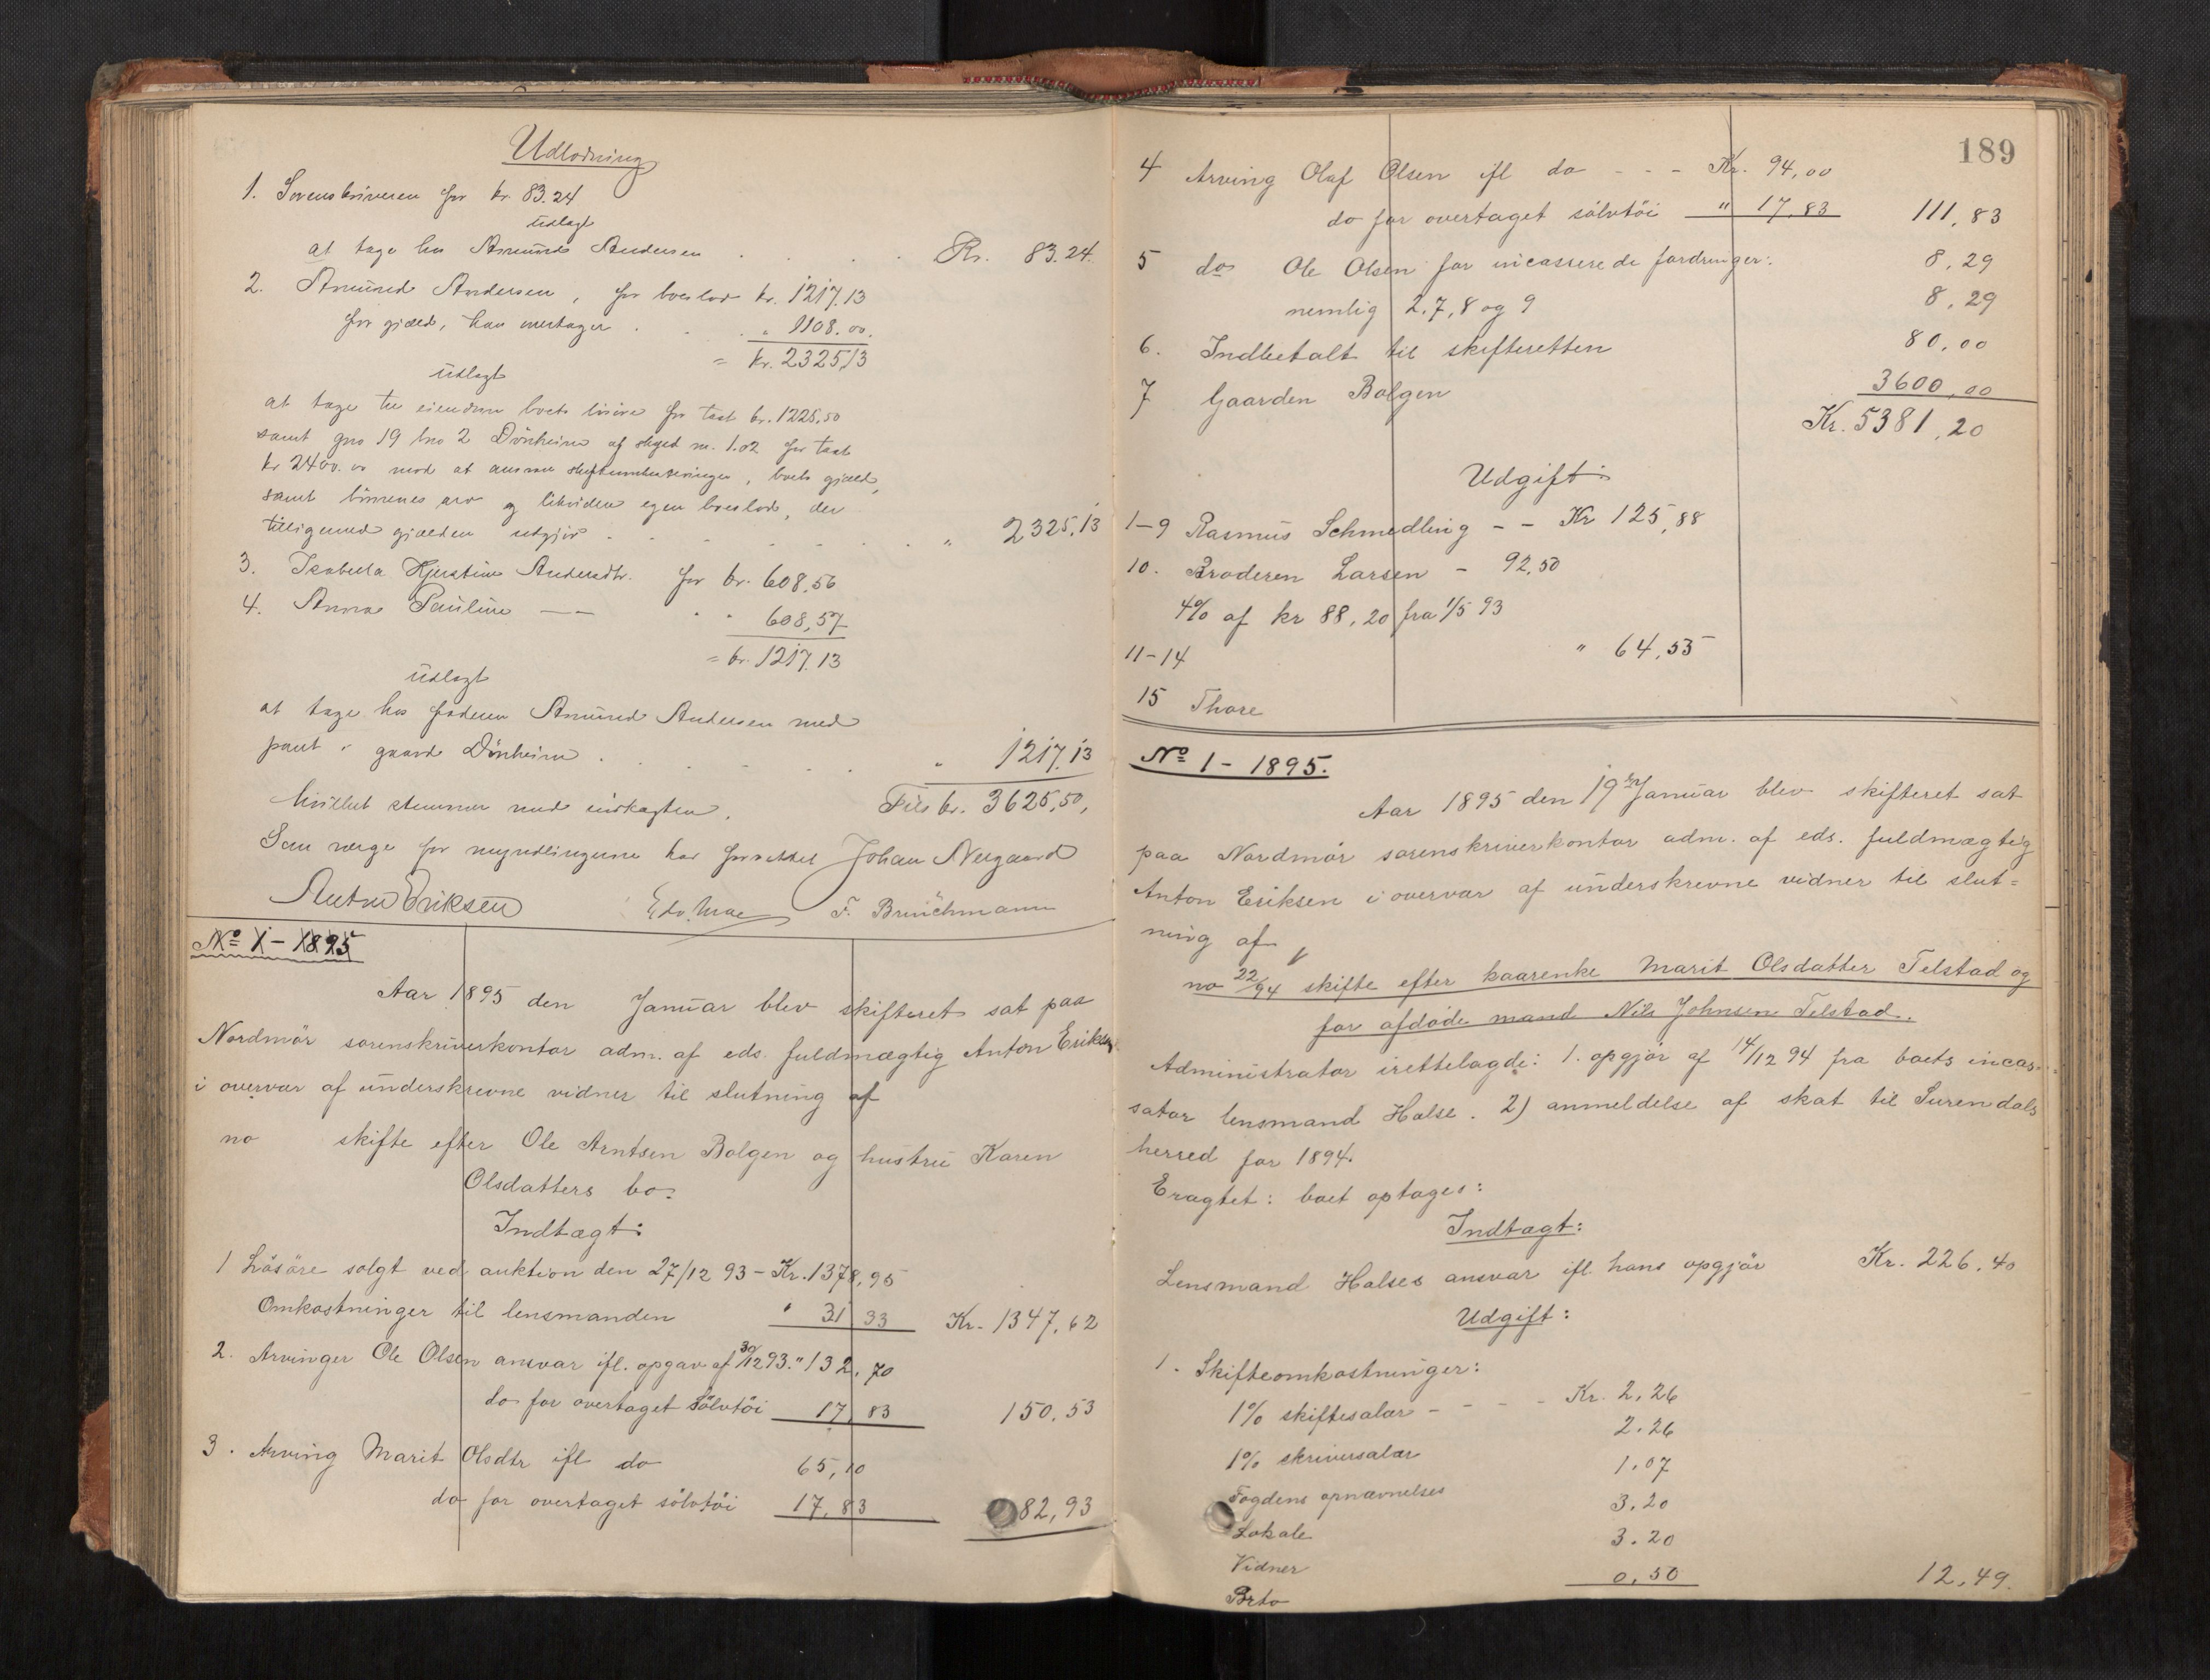 Udlodning
1. Sorenskriveren for kr. 83.24
udlagt
at tage hos Amund Andersen . . . . Kr. 83.24.
2. Amund Andersen, for boeslod kr. 1217.13
for gjæld, han overtager . . . " 1108.00.
= kr. 2325,13
udlagt
at tage til eiendom boets løsøre for taxt kr. 1225,50
samt gno 19 bno 2 Dönheim af skyld m. 1.02 for taxt
kr 2400.00 mod at ansvare skifteomkostninger, boets gjæld,
samt börnenes arv og likviderer egen boeslod, der
tilligemed gjælden udgjör . . . . . . . " 2325,13
3. Isabella Kjerstine Andersdtr. for kr. 608,56
4. Anna Pauline — — " " 608,57
= kr. 1217.13
udlagt
at tage hos faderen Amund Andersen med
pant i gaarde Dönheim . . . . . " 1217.13
hvilket stemmer med indtægten. Tils kr. 3625,50,
Som verge for myndlingerne har forrettet Johan Neergaard
Anton Eriksen Edv. Moe F. Brüchmann
No 1 - 1895
Aar 1895 den Januar blev skifteret sat paa
Nordmör sorenskriverkontor adm. af eds. fuldmægtig Anton Eriksen
i overvær af underskrevne vidner til slutning af
no skifte efter Ole Arntsen Bolgen og hustru Karen
Olsdatters bo.
Indtægt:
1 Lösöre solgt ved auktion den 27/12 93 - Kr. 1378,95
Omkostninger til lensmanden " 31 33 Kr. 1347,62
2. Arvinger Ole Olsen ansvar ifl. opgav af 30/12 93. " 132,70
do for overtaget sölvtöi 17,83 150,53
3. Arving Marit Olsdtr ifl do 65,10
do for overtaget sölvtöi 17,83 82,93
189
4 Arving Olaf Olsen ifl do - - - Kr. 94,00
do for overtaget sölvtöi " 17,83 111,83
5 do Ole Olsen for incasserede fordringer: 8,29
nemlig 2,7,8 og 9 8,29
6. Indbetalt til skifteretten 80,00
7 Gaarden Bolgen 3600,00
Kr. 5381,20
Udgift:
1-9 Rasmus Schmedling - - Kr 125,88
10. Broderen Larsen - 92,50
4% af kr 88,20 fra 1/5 93
11-14 " 64,55
15 Thore
No 1 - 1895.
Aar 1895 den 19de Januar blev skifteret sat
paa Nordmör sorenskriverkontor adm. af eds. fuldmægtig
Anton Eriksen i overvær af underskrevne vidner til slut=
ning af
no 22/94 skifte efter kaarenke Marit Olsdatter Telstad og
for afdöde mand Nils Johnsen Telstad.
Administrator irettelagde: 1. opgjör af 14/12 94 fra boets incas-
sator lensmand Halse. 2) anmeldelse af skat til Surendals
herred for 1894.
Eragtet: boet optages:
Indtægt:
Lensmand Halses ansvar ifl. hans opgjör Kr. 226.40
Udgift:
1. Skifteomkostninger:
1% skiftesalær - - - - Kr. 2.26
1% skriversalær 2.26
Fogdens opnævnelses 1.07
Lokale 3.20
Vidner 3.20
Brto 0,50 12,49.